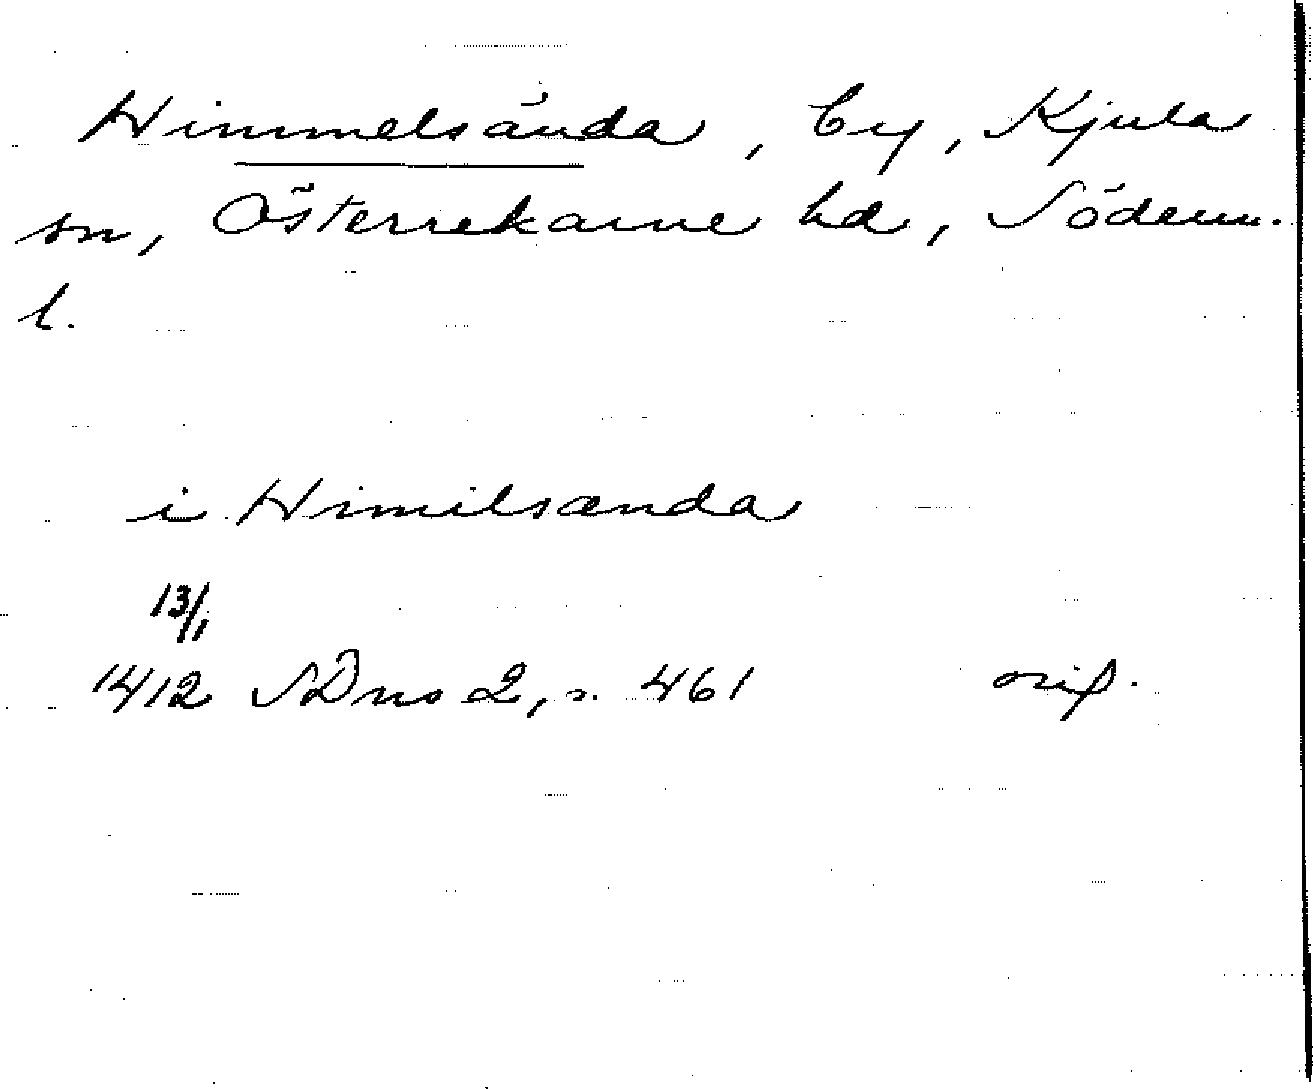 Himmelsända, by, Kjula
sn, Österrekarne hd, Söderm.
l.
i Himilsænda
13/1
1412 SDns 2, s. 461 orig.